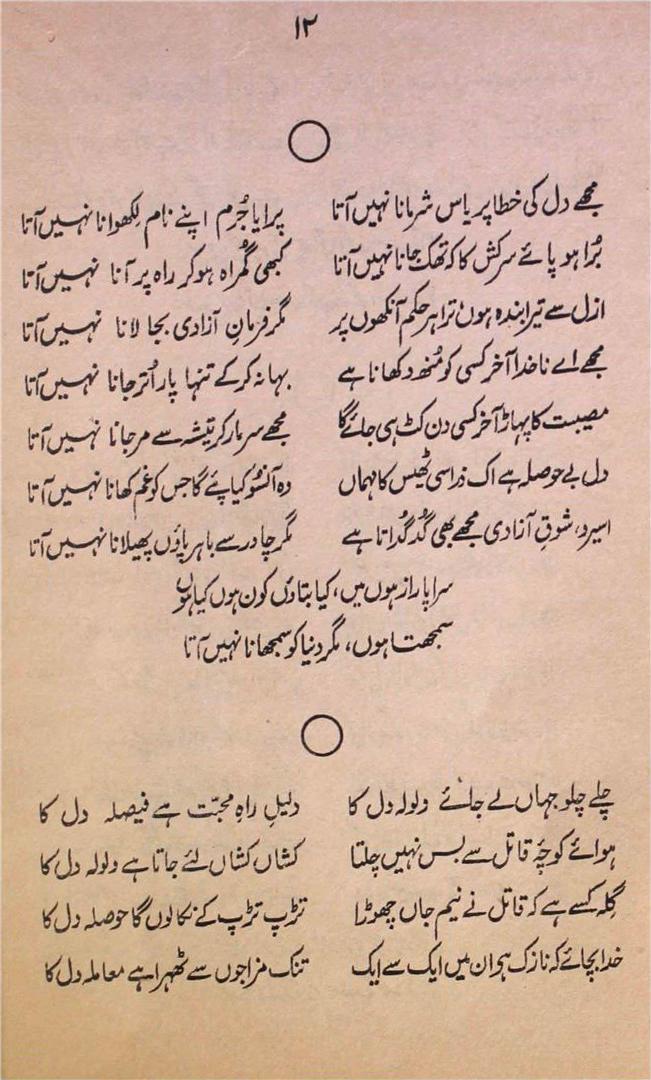 ۱۲
مجھے دل کی خطا پر یاس شرمانا نہیں آتا پرایا جُرم اپنے نام لِکھوانا نہیں آتا
بُرا ہو پائے سرکش کا کہ تھک جانا نہیں آتا کبھی گُمراہ ہو کر راہ پر آنا نہیں آتا
ازل سے تیرا بندہ ہوں ترا ہر حکم آنکھوں پر مگر فرمانِ آزادی بجا لانا نہیں آتا
مجھے اے ناخدا آخر کسی کو مُنھ دکھانا ہے بہانہ کر کے تنہا پار اُتر جانا نہیں آتا
مصیبت کا پہاڑ آخر کسی دن کٹ ہی جائے گا مجھے سر مار کر تیشہ سے مر جانا نہیں آتا
دل بے حوصلہ ہے اک ذرا سی ٹھیس کا مہماں وہ آنسُو کیا پئے گا جس کو غم کھانا نہیں آتا
اسیرو، شوقِ آزادی مجھے بھی گُدگُداتا ہے مگر چادر سے باہر پاؤں پھیلانا نہیں آتا
سراپا راز ہوں میں، کیا بتاؤں کون ہوں کیا ہوں
سمجھتا ہوں، مگر دنیا کو سمجھانا نہیں آتا
چلے چلو جہاں لے جائے ولولہ دل کا دلیلِ راہِ محبّت ہے فیصلہ دل کا
ہوائے کوچۂ قاتل سے بس نہیں چلتا کشاں کشاں لئے جاتا ہے ولولہ دل کا
گِلہ کسے ہے کہ قاتل نے نیم جاں چھوڑا تڑپ تڑپ کے نکالوں گا حوصلہ دل کا
خدا بچائے کہ نازک ہے ان میں ایک سے ایک تنک مزاجوں سے ٹھہرا ہے معاملہ دل کا